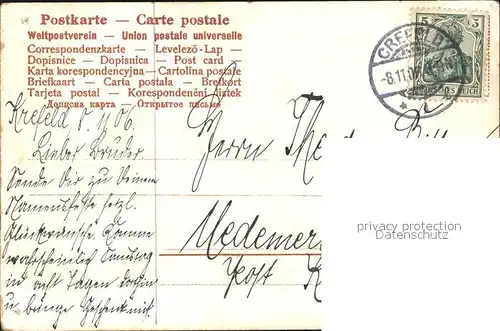 Postkarte — Carte postale
Weltpostverein — Union postale universelle
Correspondenzkarte — Levelező-Lap —
Dopisnice — Dopisnica — Post card —
Karta korespondencyjna — Cartolina postale
Briefkaart — Carta postala — Brefkort
Tarjeta postal — Korespondenční listek
Дописна карта — Открытое письмо
5 5
CREFELD
-8.11.06
DEUTSCHES REICH
Krefeld 8.11.06
Lieber Bruder.
Sende Dir zu Deinem
Namensfeste herzl.
Glückwünsche. Komme
wahrscheinlich Samstag
in acht Tagen dorthin
u. bringe Geschenk mit.
Herrn
Uedemer
Post
privacy protection
Datenschutz